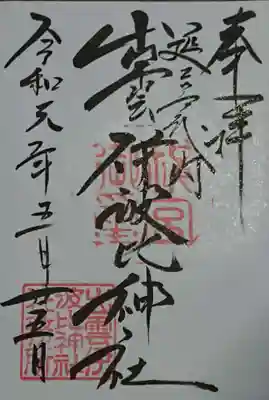 奉拝
延喜式内
出雲伊波比神社
令和元年五月廿五日